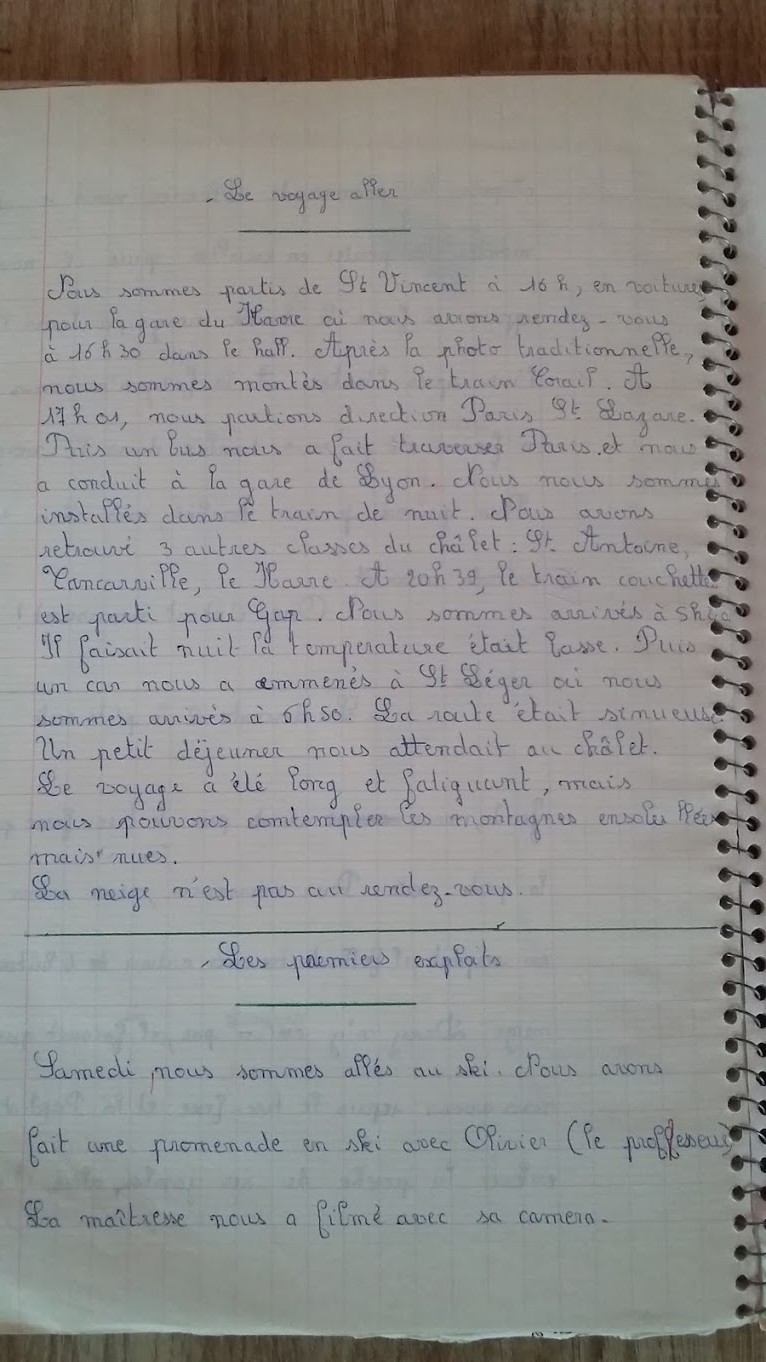 - Le voyage aller
Nous sommes partis de St Vincent à 16 h, en voitures
pour la gare du Havre où nous avions rendez-vous
à 16 h 30 dans le hall. Après la photo traditionnelle,
nous sommes montés dans le train Corail. A
17 h 01, nous partions direction Paris St Lazare.
Puis un bus nous a fait traverser Paris et nous
a conduit à la gare de Lyon. Nous nous sommes
installés dans le train de nuit. Nous avons
retrouvé 3 autres classes du châlet : St Antoine,
Tancarville, le Havre. A 20h39, le train couchette
est parti pour Gap. Nous sommes arrivés à
Il faisait nuit la temperature était basse. Puis
un car nous a emmenés à St Léger où nous
sommes arrivés à 6h50. La route était sinueuse.
Un petit déjeuner nous attendait au châlet.
Le voyage a été long et fatiguant, mais
nous pouvons comtempler les montagnes ensolellées
mais nues.
La neige n'est pas au rendez-vous.
- Les premiers exploits
Samedi, nous sommes allés au ski. Nous avons
fait une promenade en ski avec Olivier (le proffeseur)
La maîtresse nous a filmé avec sa camera.